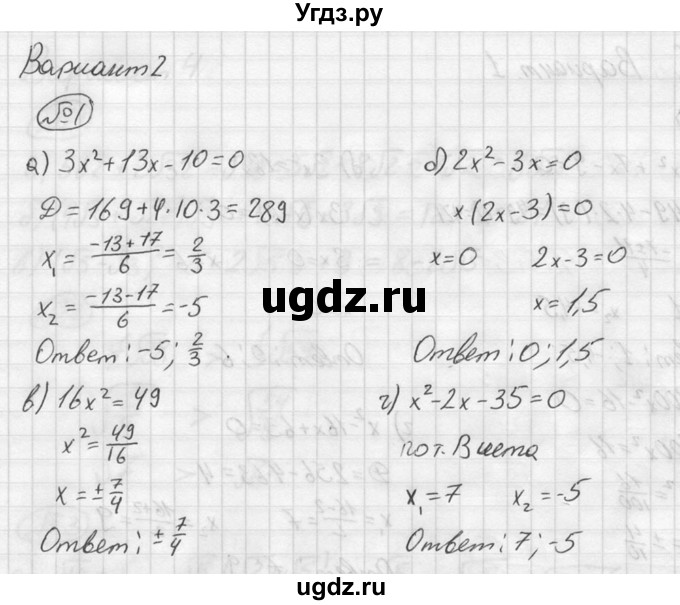 Угдз.ру
Вариант 2
№1
а) 3x² + 13x - 10 = 0
D = 169 + 4·10·3 = 289
x₁ = (-13+17)/6 = 2/3
x₂ = (-13-17)/6 = -5
Ответ: -5; 2/3.
б) 2x² - 3x = 0
x(2x-3) = 0
x = 0 2x-3 = 0
x = 1,5
Ответ: 0; 1,5
в) 16x² = 49
x² = 49/16
x = ± 7/4
Ответ: ± 7/4
г) x² - 2x - 35 = 0
по т. Виета
x₁ = 7 x₂ = -5
Ответ: 7; -5
ugdz.ru
ugdz.ru